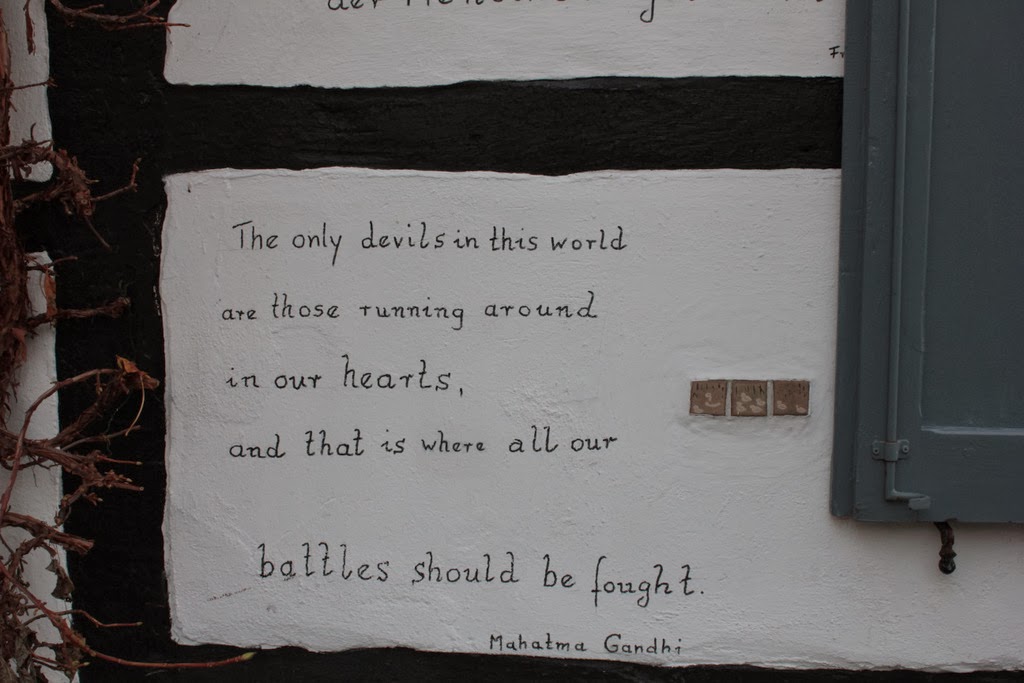 The only devils in this world
are those running around
in our hearts,
and that is where all our
battles should be fought.
Mahatma Gandhi